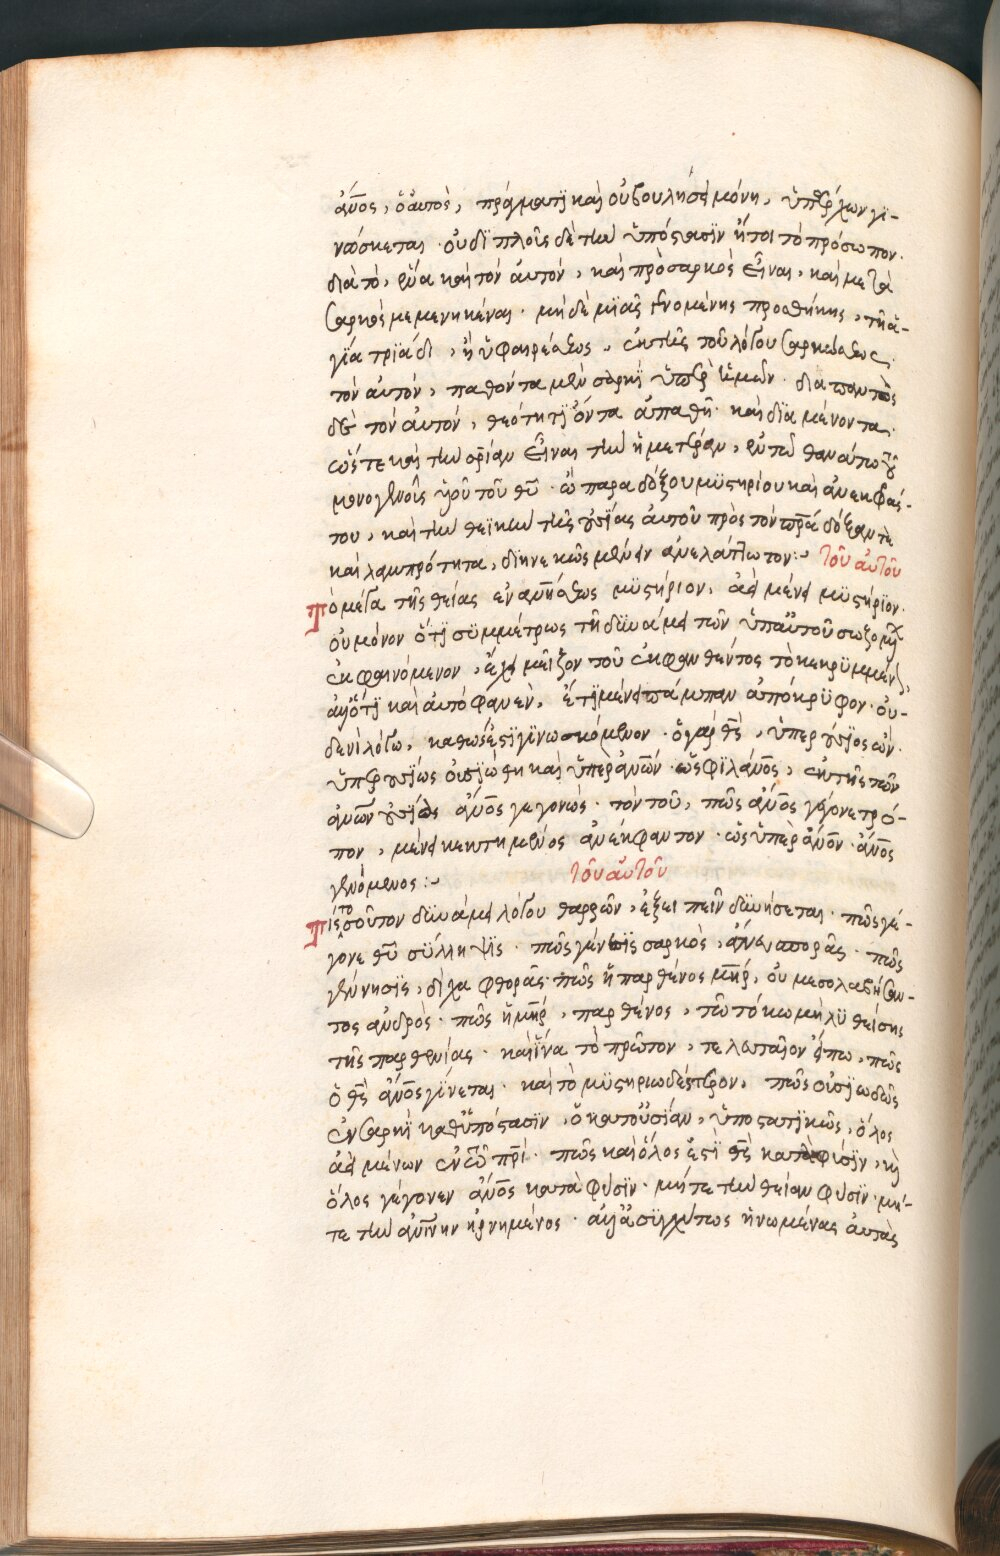 ἄνος, ὁ αὐτὸς, πράγματϊ καὶ οὐ βουλήσει μόνη, ὑπάρχων γϊ-
νώσκεται· οὐ διπλοῖς δὲ τὴν ὑπόστασϊν ἤτοι τὸ πρόσωπον·
διὰ τὸ, ἕνα καὶ τὸν αὐτὸν, καὶ πρὸ σαρκὸς εἶναι, καὶ μετὰ
σαρκὸς μεμενηκέναι· μηδὲ μϊᾶς γενομένης προσθήκης, τῆ ἁ-
γία τρϊάδι, ἢ ὑφαιρέσεως, ἐκ τῆς τοῦ λόγου σαρκώσεως·
τὸν αὐτὸν, παθόντα μὲν σαρκὶ ὑπὲρ ἡμῶν· διαπαντὸς
δὲ τὸν αὐτὸν, θεότητϊ ὄντα ἀπαθῆ· καὶ δϊαμένοντα·
ὥστε καὶ τὴν σρίαν εἶναι τὴν ἡμετέραν, ἐν τῶ θανάτω τοῦ
μονογενοῦς ὑοῦ τοῦ θυ· ὢ παραδόξου μϋστηρίου καὶ ἀνεκφάσ-
του, καὶ τὴν θεϊκὴν τῆς οὐσίας αὐτοῦ πρὸς τὸν πρα δόξαν τὲ
καὶ λαμπρότητα, δϊηνεκῶς μένειν ἀνελάττωτον:~ τοῦ αὐτοῦ
Τὸ μέγα τῆς θείας ἐνανήσεως μϋστήριον, ἀεὶ μένει μϋστήρϊον·
οὐ μόνον ὅτϊ συμμέτρως τῆ δϋνάμει τῶν ὑπ' αὐτοῦ σωζομένων
ἐκφαινόμενον, ἔχει μεῖζον τοῦ ἐκφανθέντος τὸ κεκρϋμμένον,
ἀλλ' ὅτϊ καὶ αὐτὸ φανὲν, ἔτϊ μένει πάμπαν ἀπόκρϋφον· οὐ-
δενὶ λόγω, καθώς ἐστϊ γϊνωσκόμενον· ὁ γὰρ θς, ὑπερούσϊος ὢν·
ὑπερουσϊως οὐσϊώθη καὶ ὑπὲρ ἀνων· ὡς φϊλάνος, ἐκ τῆς τῶν
ἀνων οὐσϊας ἄνος γεγονώς· τὸν τοῦ, πῶς ἄνος γέγονε τρό-
πον, μένει κεκτημένος ἀνέκφαντον· ὡς ὑπὲρ ἄνον· ἄνος
γενόμενος:~ τοῦ αὐτοῦ
Τίς τοσοῦτον δϋνάμει λόγου θαρρῶν, ἐξειπεῖν δϋνήσεται· πῶς γέ-
γονε θυ σύλληψϊς· πῶς γένεσϊς σαρκὸς, ἄνευ σπορᾶς· πῶς
γέννησϊς, δίχα φθορᾶς· πῶς ἡ παρθένος μηρ, οὐ μεσολαβήσαν-
τος ἀνδρὸς· πῶς ἡ μηρ, παρθένος, τῶ τόκω μὴ λϋθείσης
τῆς παρθενίας· καὶ ἵνα τὸ πρῶτον, τελευταῖον εἴπω, πῶς
ὁ θς ἄνος γίνεται· καὶ τὸ μϋστηριωδέστερον, πῶς οὐσϊωδῶς
ἐν σαρκὶ καθ' ὑπόστασϊν, ὁ κατ' οὐσίαν, ὑποστατϊκῶς, ὅλος
ἀεὶ μένων ἐν τῶ πρι· πῶς καὶ ὅλος ἐστὶ θς κατὰ φύσϊν, καὶ
ὅλος γέγονεν ἄνος κατὰ φύσϊν· μήτε τὴν θείαν φύσϊν· μή-
τε τὴν ἀνίνην ἠρνημένος· ἀλλ' ἀσϋγχύτως ἡνωμένας αὐτὰς